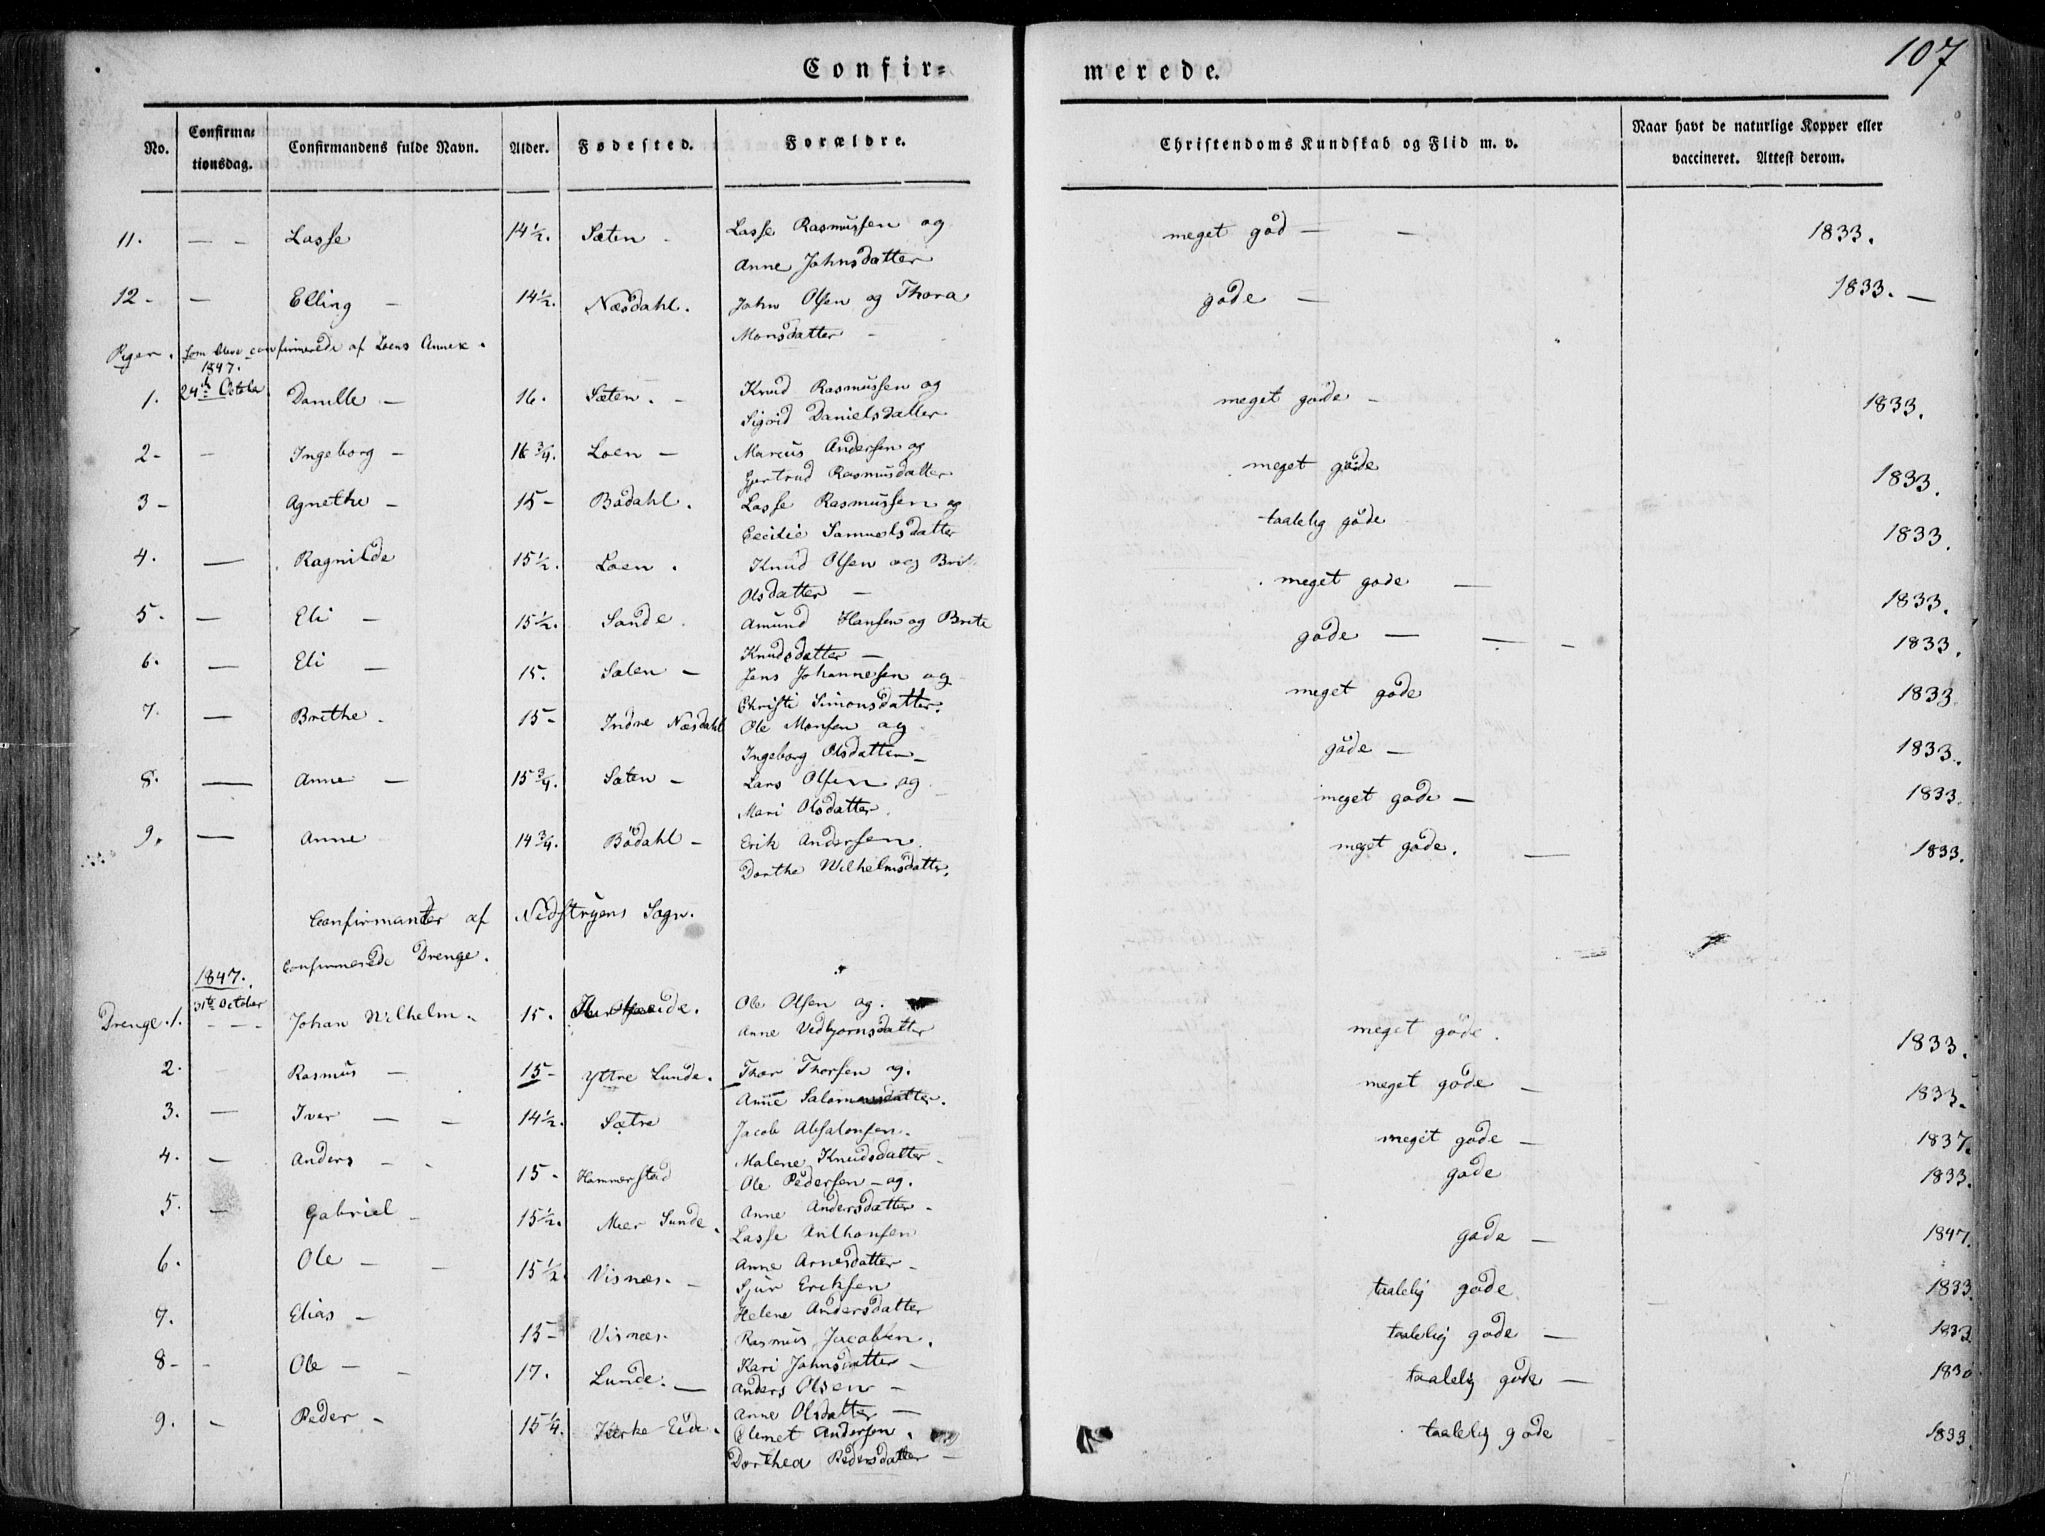 107
Confir=
merede.
No. Confirma= Confirmandens fulde Navn. Alder. Fødested. Forældre. Christendoms Kundskab og Flid m. v. Naar havt de naturlige Kopper eller
tionsdag. vaccineret. Attest derom.
11. — — Lasse 14½. Sæten - Lasse Rasmussen og meget god — — 1833.
Anne Johnsdatter
12 - — Elling — 14½. Næsdahl. John Olsen og Thora gode — 1833. —
Monsdatter —
Piger. Som blere confirmerede af Loens Annex.
1847.
1. 24de Octobr Danille — 16. Sæten. - Knud Rasmussen og meget gode — 1833.
Sigrid Danielsdatter
2 - - Ingeborg — 16¾. Loen — Marcus Andersen og meget gode 1833.
Gjertrud Rasmusdatter
3 - Agnethe — 15 - Bødahl. Lasse Rasmussen og taalelig gode 1833.
Cecilie Samuelsdatter
4. — Ragnilde 15½. Loen. Knud Olsen og Brit meget gode — 1833.
Olsdatter —
5. — Eli — 15½. Sande. Amund Hansen og Brite gode — — - 1833.
Knudsdatter —
6. — Eli — 15. Sæten — Jens Johannesen og meget gode 1833.
Christi Simonsdatter.
7. — Brithe. 15 - Indre Næsdahl Ole Monsen og gode — 1833.
Ingeborg Olsdatter —
8. — Anne — 15¾. Sæten — Lars Olsen og meget gode — 1833.
Mari Olsdatter.
9. — Anne 14¾. Bødahl — Erik Andersen. meget gode. — 1833.
Dorthe Wilhelmsdatter.
Confirmanter af Nedstryens Sogn.
Confirmerede Drenge.
1847.
31te October
Drenge. 1. - - - Johan Wilhelm. 15. Ole Olsen og. meget gode. 1833.
Anne Vedbjornsdatter
2. Rasmus — 15 - Yttre Lunde. Thor Thorsen og. meget gode — 1833.
Anne Salomonsdatter.
3. — Iver — - 14½. Sætre Jacob Absalonsen. meget gode — 1837.
Malene Knudsdatter
4. — Anders - - 15 - Hammerstad Ole Pedersen - og. gode 1833.
Anne Andersdatter -
5. — Gabriel - 15½. Meer Sunde. Lasse Anthonsen gode — 1847.
Anne Arnesdatter -
6. Ole — - 15½. Visnæs. — Sjur Eriksen taalelig gode 1833.
Helene Andersdatter
7. Elias — 15 - Visnæs. Rasmus Jacobsen. taalelig gode — 1833.
Kari Johnsdatter —
8 - - Ole — - 17. Lunde. — Anders Olsen — taalelig gode — 1830
Anne Olsdatter —
9. - Peder - 15¼. Kirke-Eide. Clemet Andersen. taalelig gode 1833.
Dorthea Pedersdatter —